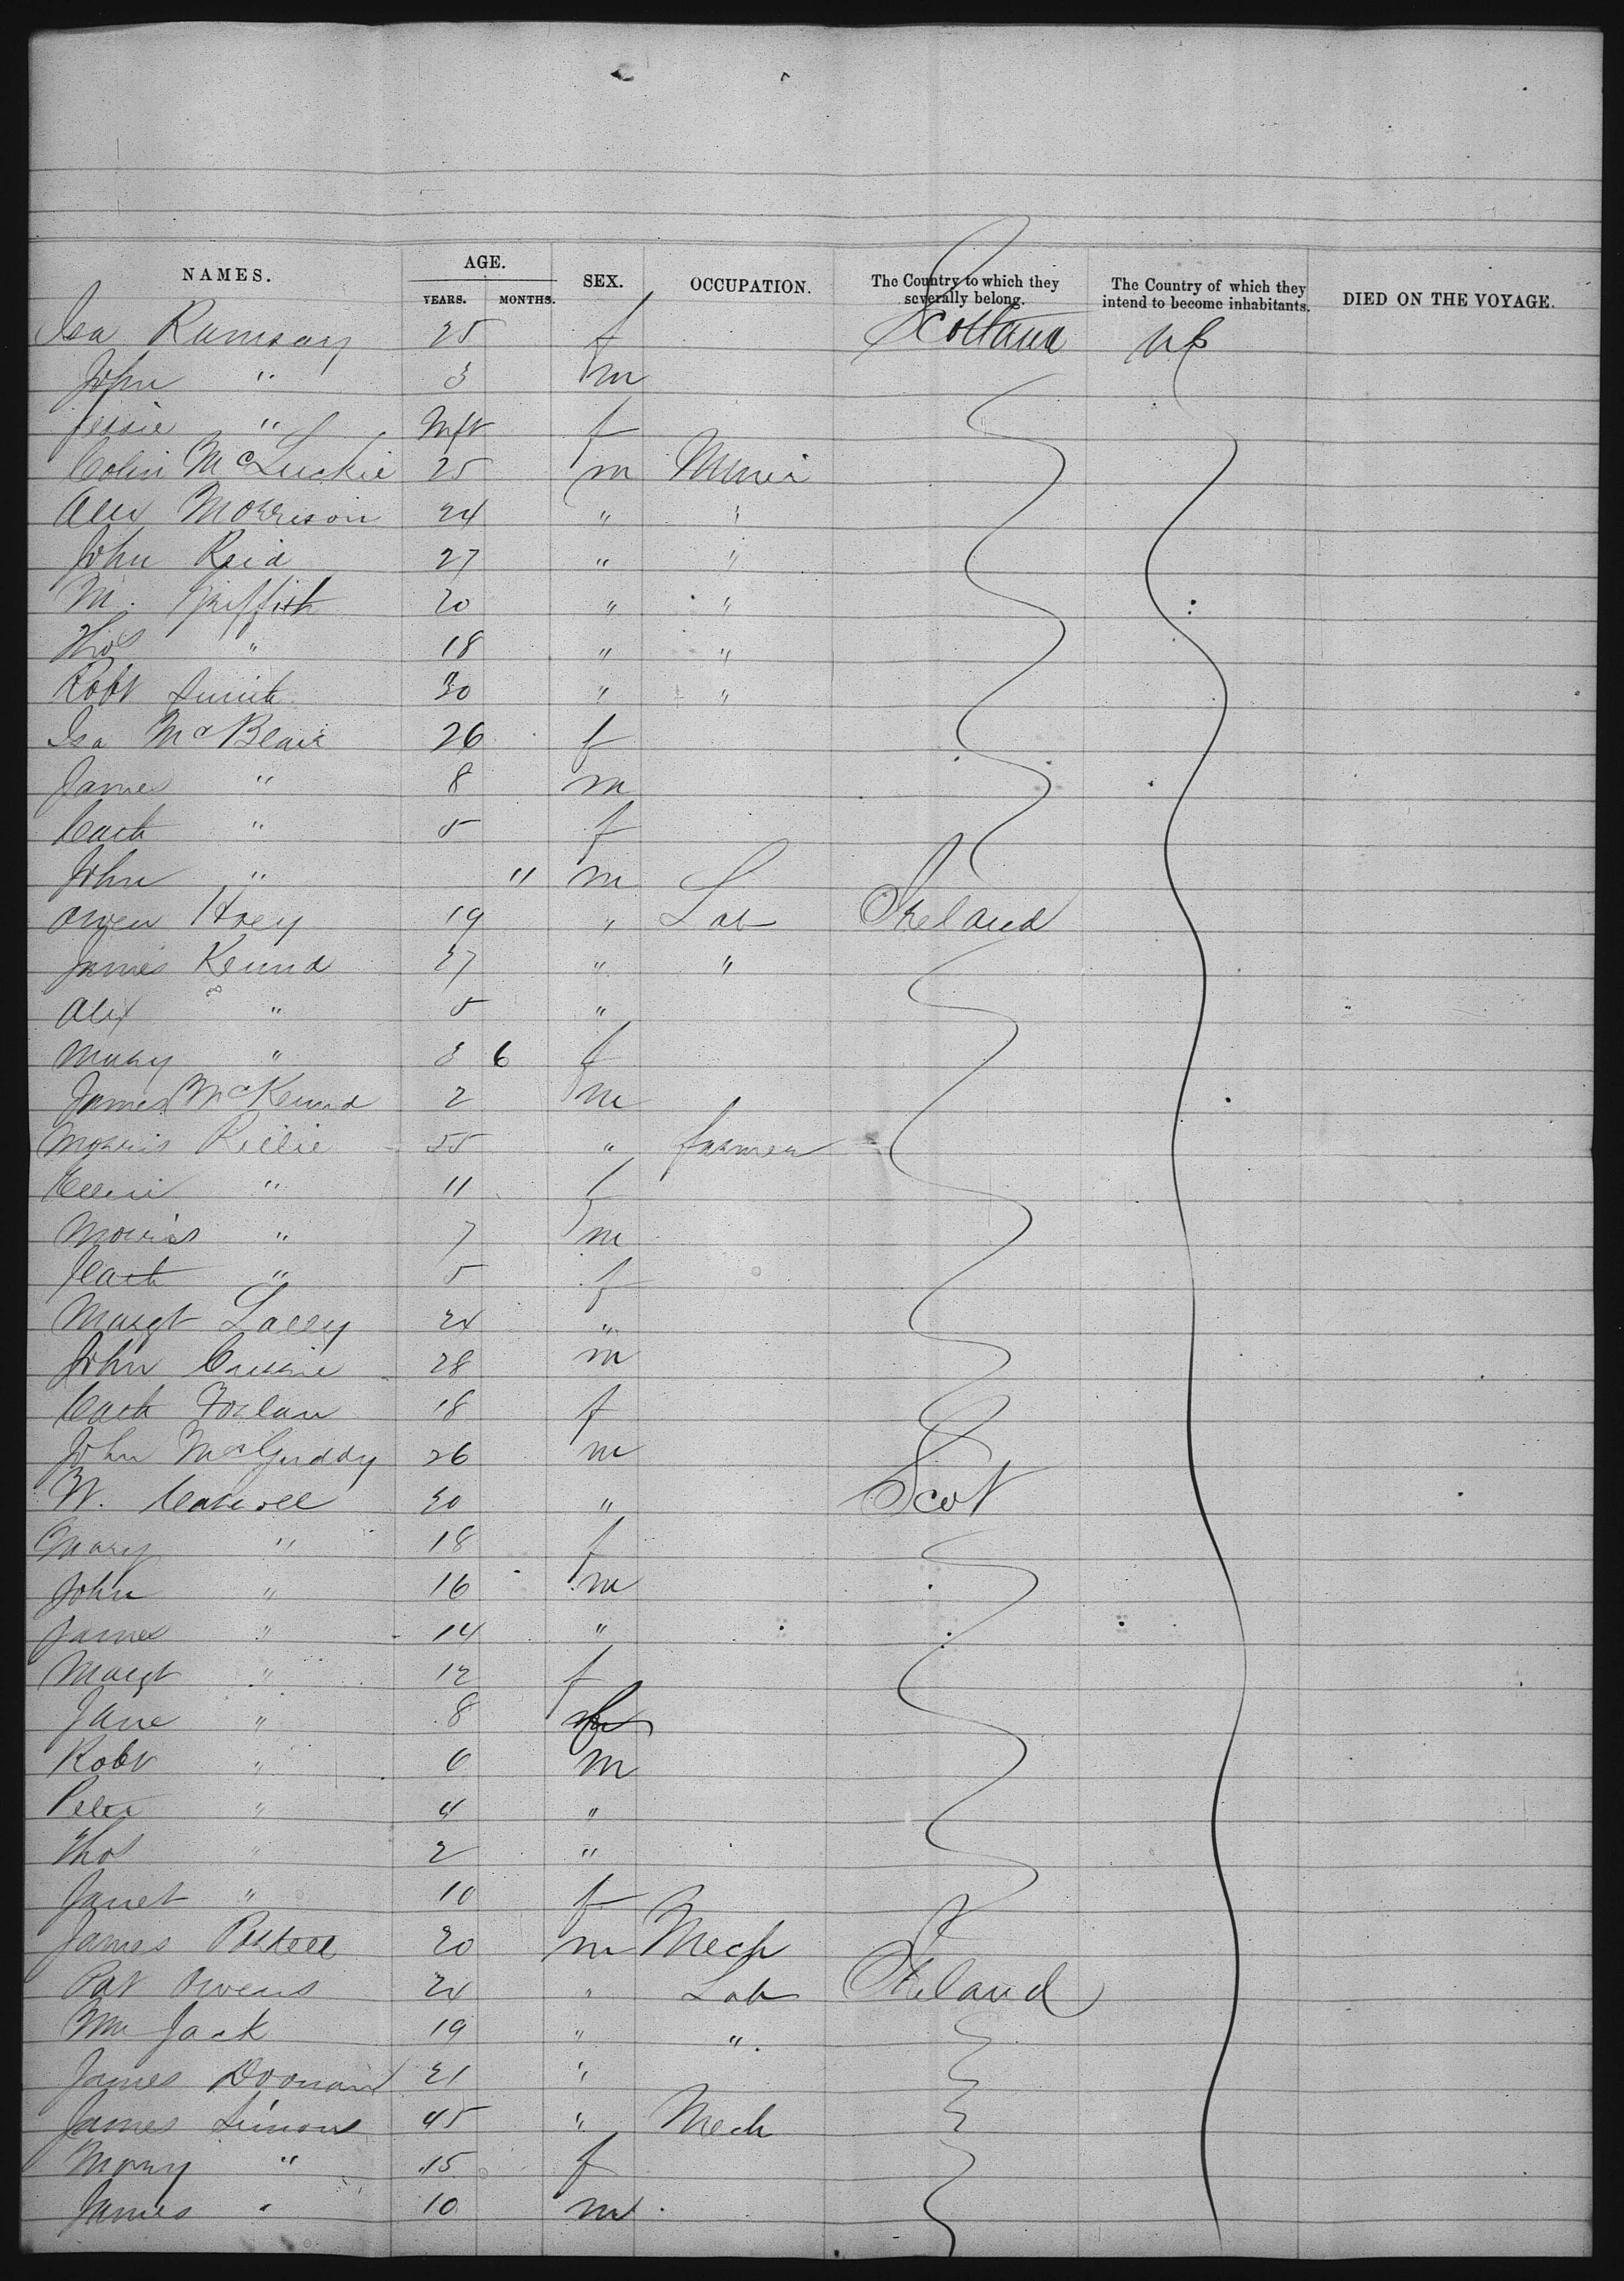 NAMES. AGE. SEX. OCCUPATION. The Country to which they severally belong. The Country of which they intend to become inhabitants. DIED ON THE VOYAGE.
YEARS. MONTHS.
Isa Ramsay 25 f Scotland US
John " 3 m
Jessie " Inft f
Colin McLuckie 25 m Miner
Alex Morrison 24 " "
John Reid 27 " "
M. Griffith 20 " "
Thos " 18 " "
Robt Smith 30 " "
Isa McBlair 26 f
James " 8 m
Cath " 5 f
John " 11 m
Owen Hoey 19 " Lab Ireland
James 27 " "
Alex " 5 "
Mary " 3 6 f
James 2 m
Morris Rielie 55 " farmer
Ellen " 11 f
Morris " 7 m
Cath " 5 f
Margt 24 "
John 28 m
Cath 18 f
John 26 m
W. 30 " Scot
Mary " 18 f
John " 16 m
James " 14 "
Margt " 12 f
Jane " 8 f
Robt " 6 m
Peter " 4 "
Thos " 2 "
Janet " 10 f
James 20 m Mech
Pat Owens 24 " Lab Ireland
Wm Jack 19 " "
James 21 "
James Simons 45 " Mech
Mary " 15 f
James " 10 m